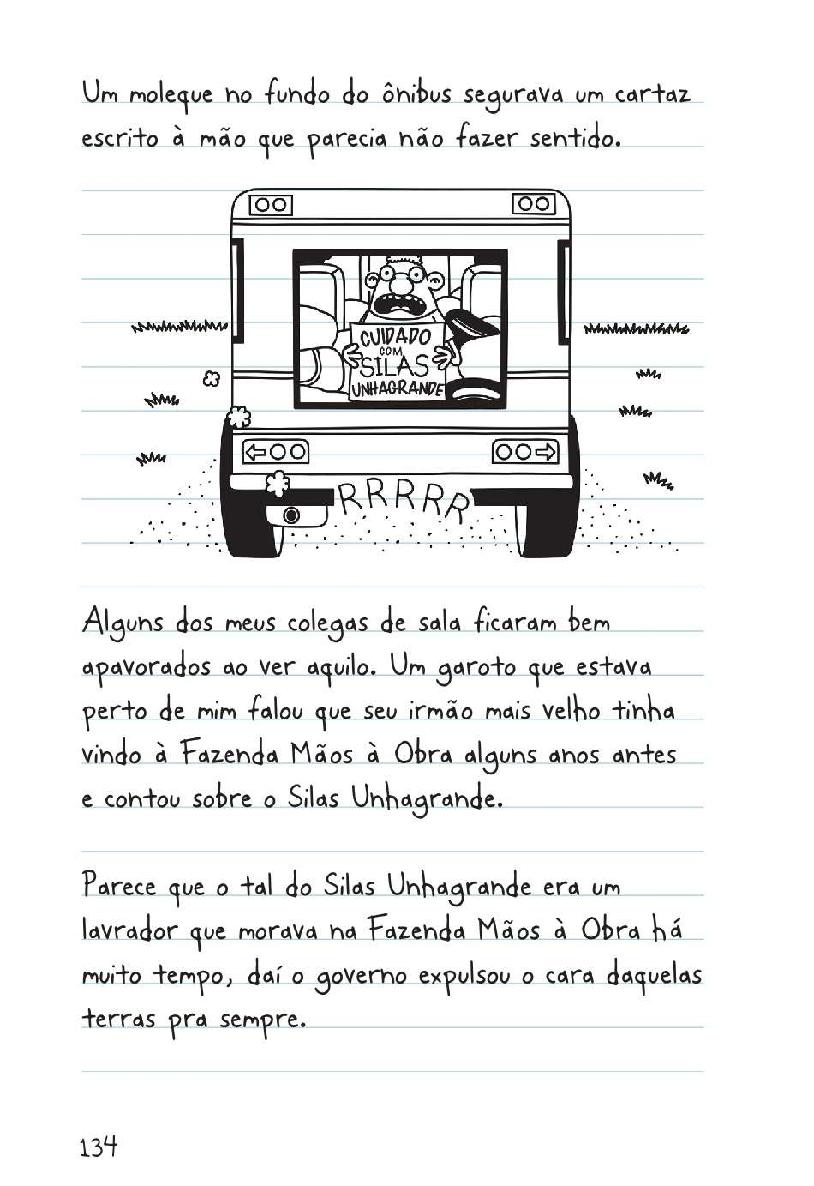 Um moleque no fundo do ônibus segurava um cartaz
escrito à mão que parecia não fazer sentido.
CUIDADO
COM
SILAS
UNHAGRANDE
RRRRR
Alguns dos meus colegas de sala ficaram bem
apavorados ao ver aquilo. Um garoto que estava
perto de mim falou que seu irmão mais velho tinha
vindo à Fazenda Mãos à Obra alguns anos antes
e contou sobre o Silas Unhagrande.
Parece que o tal do Silas Unhagrande era um
lavrador que morava na Fazenda Mãos à Obra há
muito tempo, daí o governo expulsou o cara daquelas
terras pra sempre.
134